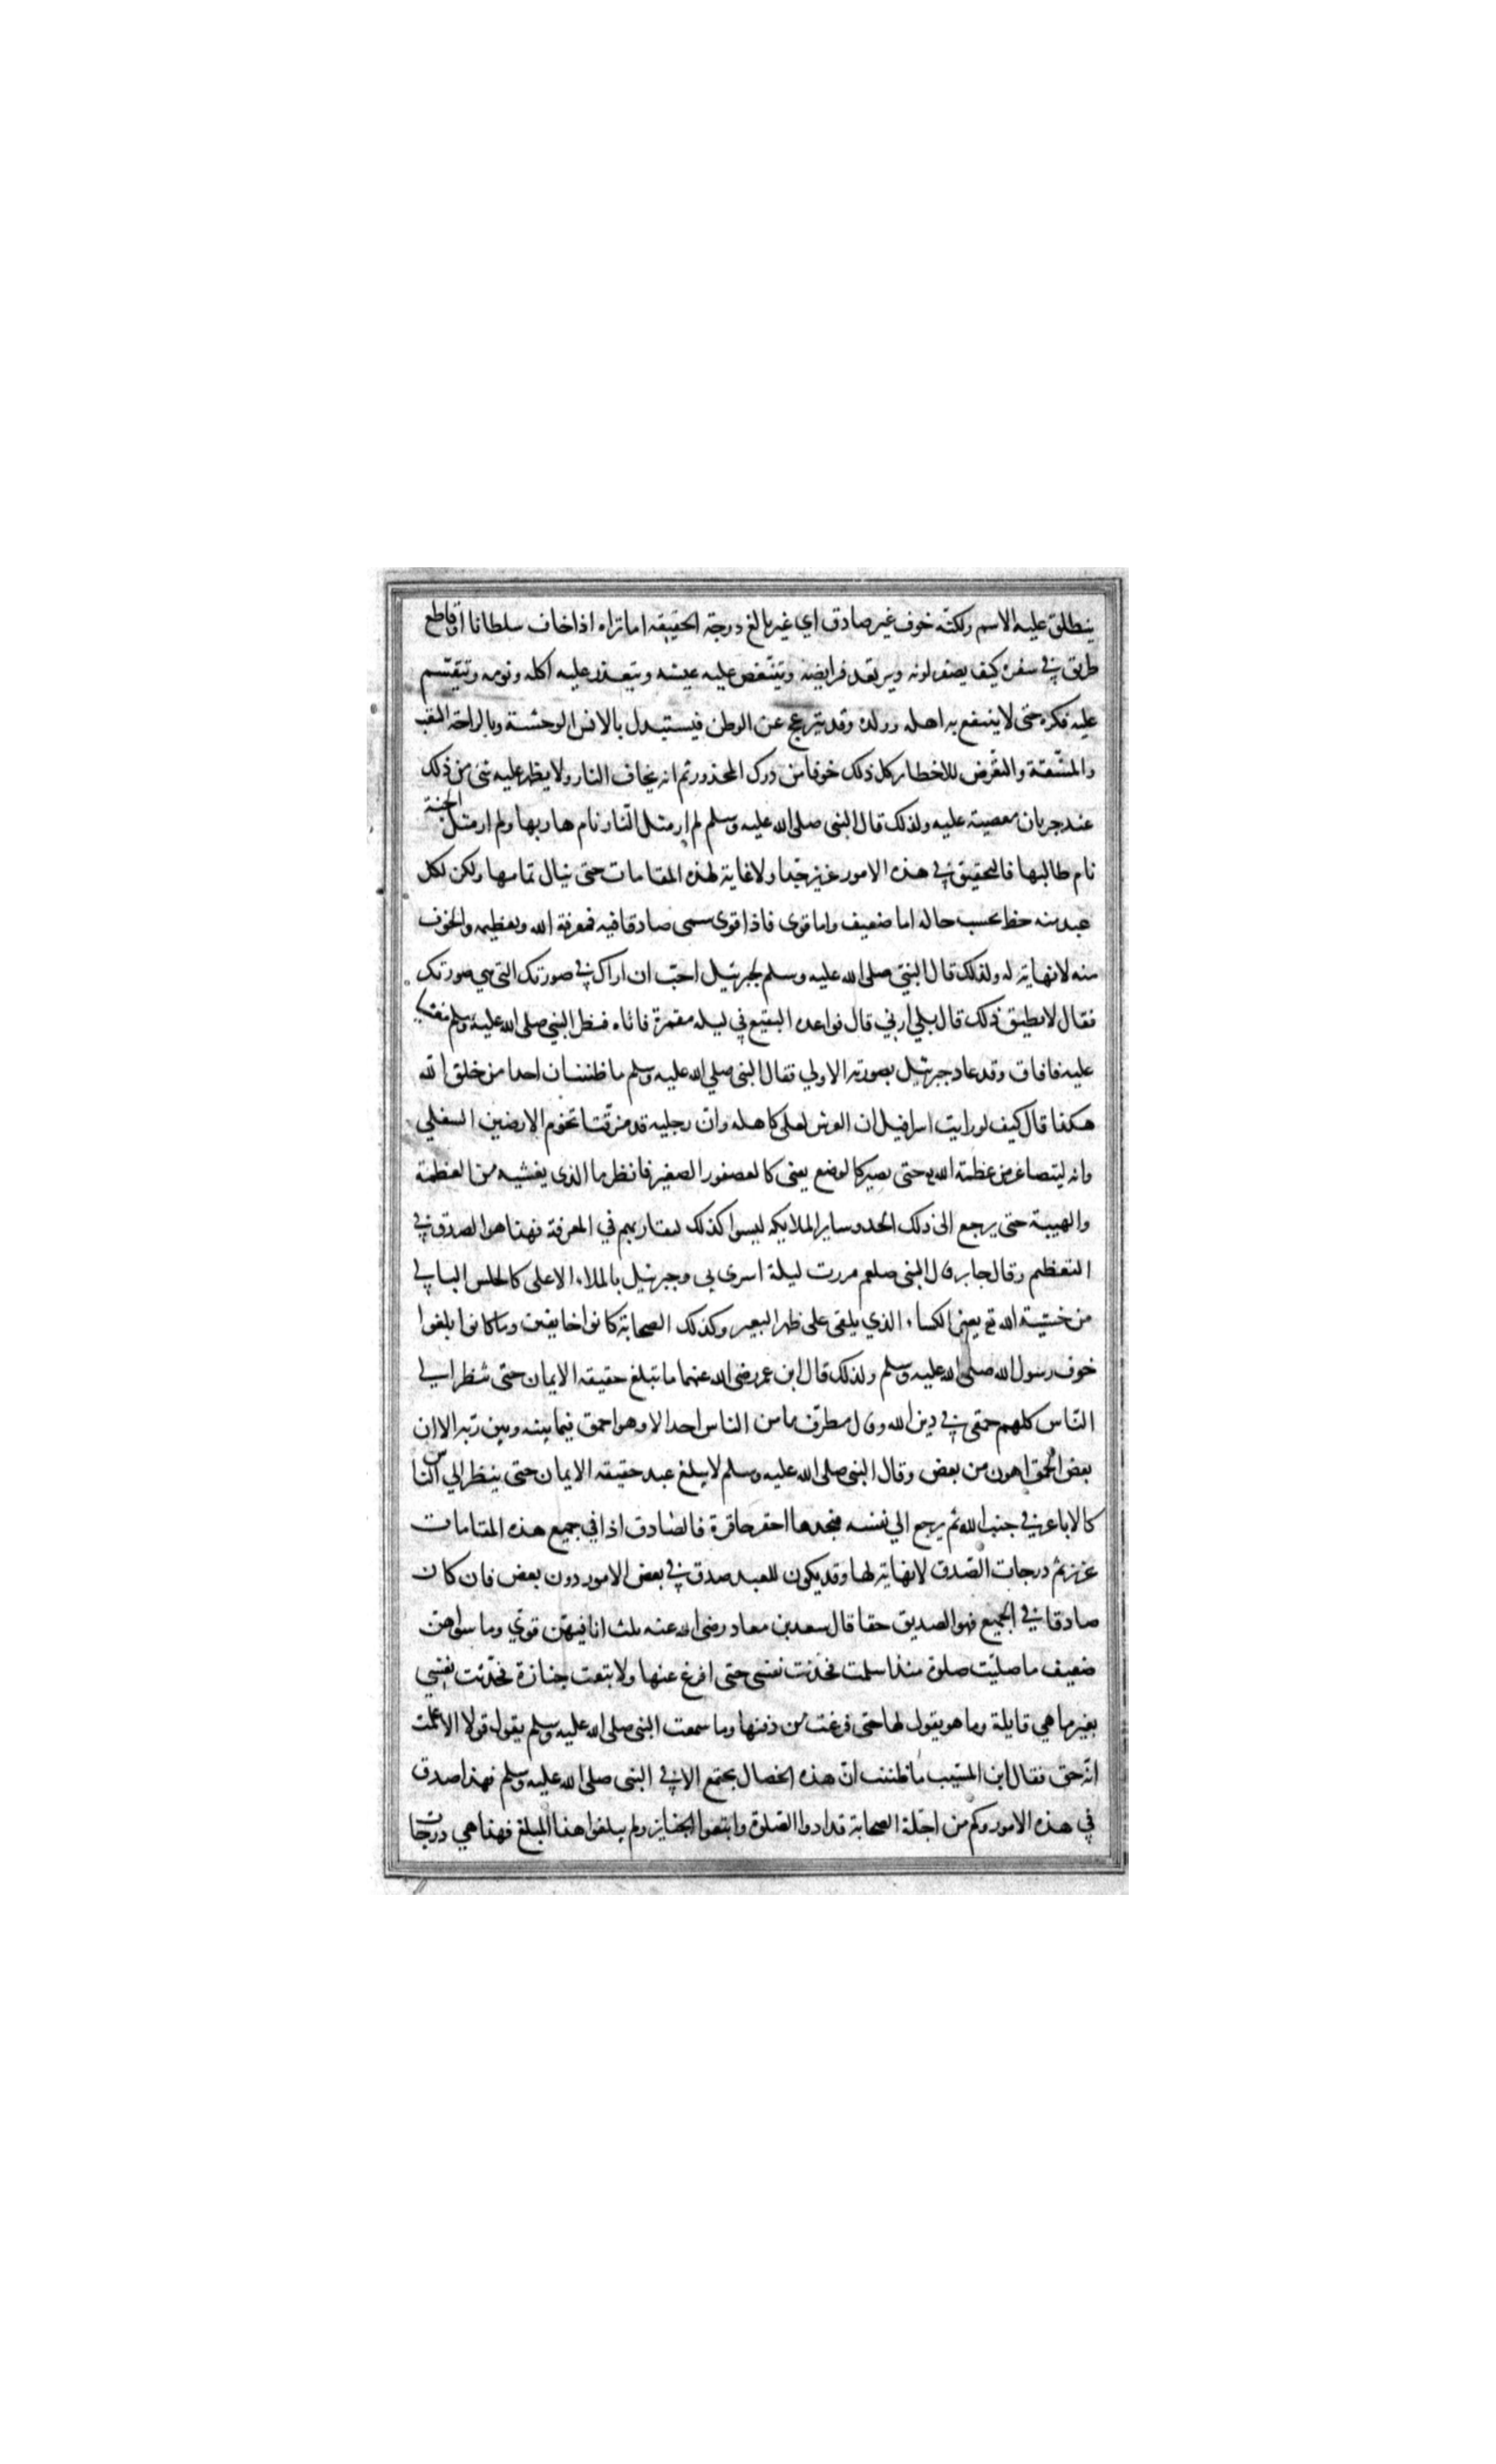 ينطلق عليه الاسم ولكنه خوف غير صادق اي غير بالغ درجة الحقيقة اما تراه اذا خاف سلطانا او قاطع
طريق في سفره كيف يصفر لونه ويرتعد فرايضه ويتنغص عليه عيشه ويتعذر عليه اكله ونومه وينقسم
عليه فكره حتى لا ينتفع به اهله وولده وقد ينزعج عن الوطن فيستبدل بالانس الوحشة وبالراحة التعب
والمشقة والتعرض للاخطار كل ذلك خوفا من درك المحذور ثم انه يخاف النار ولا يظهر عليه شئ من ذلك
عند جريان معصية عليه ولذلك قال النبى صلى الله عليه وسلم لم ار مثل النار نام هاربها ولم ار مثل الجنة
نام طالبها فالتحقيق في هذه الامور عزيز جدا ولا غاية لهذه المقامات حتى ينال تمامها ولكن لكل
عبد منه حظ بحسب حاله اما ضعيف واما قوى فاذا قوى سمى صادقا فيه فمعرفة الله وتعظيمه والخوف
منه لا نهاية له ولذلك قال النبي صلى الله عليه وسلم لجبرئيل احب ان اراك في صورتك التي هي صورتك
فقال لا تطيق ذلك قال بلى ارني قال فواعده البقيع في ليله مقمرة فاتاه فنظر النبي صلى الله عليه وسلم مغشيا
عليه فافاق وقد عاد جبرئيل بصورته الاولي فقال النبى صلي الله عليه وسلم ما ظننت ان احدا من خلق الله
هكذا قال كيف لو رايت اسرافيل ان العرش لعلى كاهله وان رجليه قد مرقتا تخوم الارضين السفلي
وانه ليتصاغر من عظمة الله تع حتى يصير كالوضع يعنى كالعصفور الصغير فانظر ما الذى يغشيه من العظمة
والهيبة حتى يرجع الى ذلك الحد وساير الملايكه ليسوا كذلك لتفاوتهم في المعرفة فهذا هو الصدق في
التعظيم وقال جابر قال النبى صلعم مررت ليلة اسرى بي وجبرئيل بالملاء الاعلى كالحلس البالي
من خشية الله تع يعنى الكساء الذي يلقى على ظهر البعير وكذلك الصحابة كانوا خايفين وما كانوا بلغوا
خوف رسول الله صلى الله عليه وسلم ولذلك قال ابن عمر رضى الله عنهما ما تبلغ حقيقه الايمان حتى تنظر الي
الناس كلهم حمقى في دين الله وقال مطرف ما من الناس احد الا وهو احمق فيما بينه وبين ربه الا ان
بعض الحمق اهون من بعض وقال النبى صلى الله عليه وسلم لا يبلغ عبد حقيقه الايمان حتى ينظر الي الناس
كالاباعر في جنب الله ثم يرجع الي نفسه فيجدها احقر حاقرة فالصادق اذا في جميع هذه المقامات
عزيز ثم درجات الصدق لا نهاية لها وقد يكون للعبد صدق في بعض الامور دون بعض فان كان
صادقا في الجميع فهو الصديق حقا قال سعد بن معاد رضى الله عنه ثلث انا فيهن قوي وما سواهن
ضعيف ما صليت صلوة منذ اسلمت فحدثت نفسى حتى افرغ عنها ولا تبعت جنازة فحدثت نفسي
بغير ما هي قايلة وما هو يقول لها حتى فرغت من دفنها وما سمعت النبى صلى الله عليه وسلم يقول قولا الا علمت
انه حق فقال ابن المسيب ما ظننت ان هذه الخصال يجتمع الا في النبى صلى الله عليه وسلم فهذا صدق
في هذه الامور وكم من اجلة الصحابة قد ادوا الصلوة واتبعوا الجنايز ولم يبلغوا هذا المبلغ فهذا هي درجات